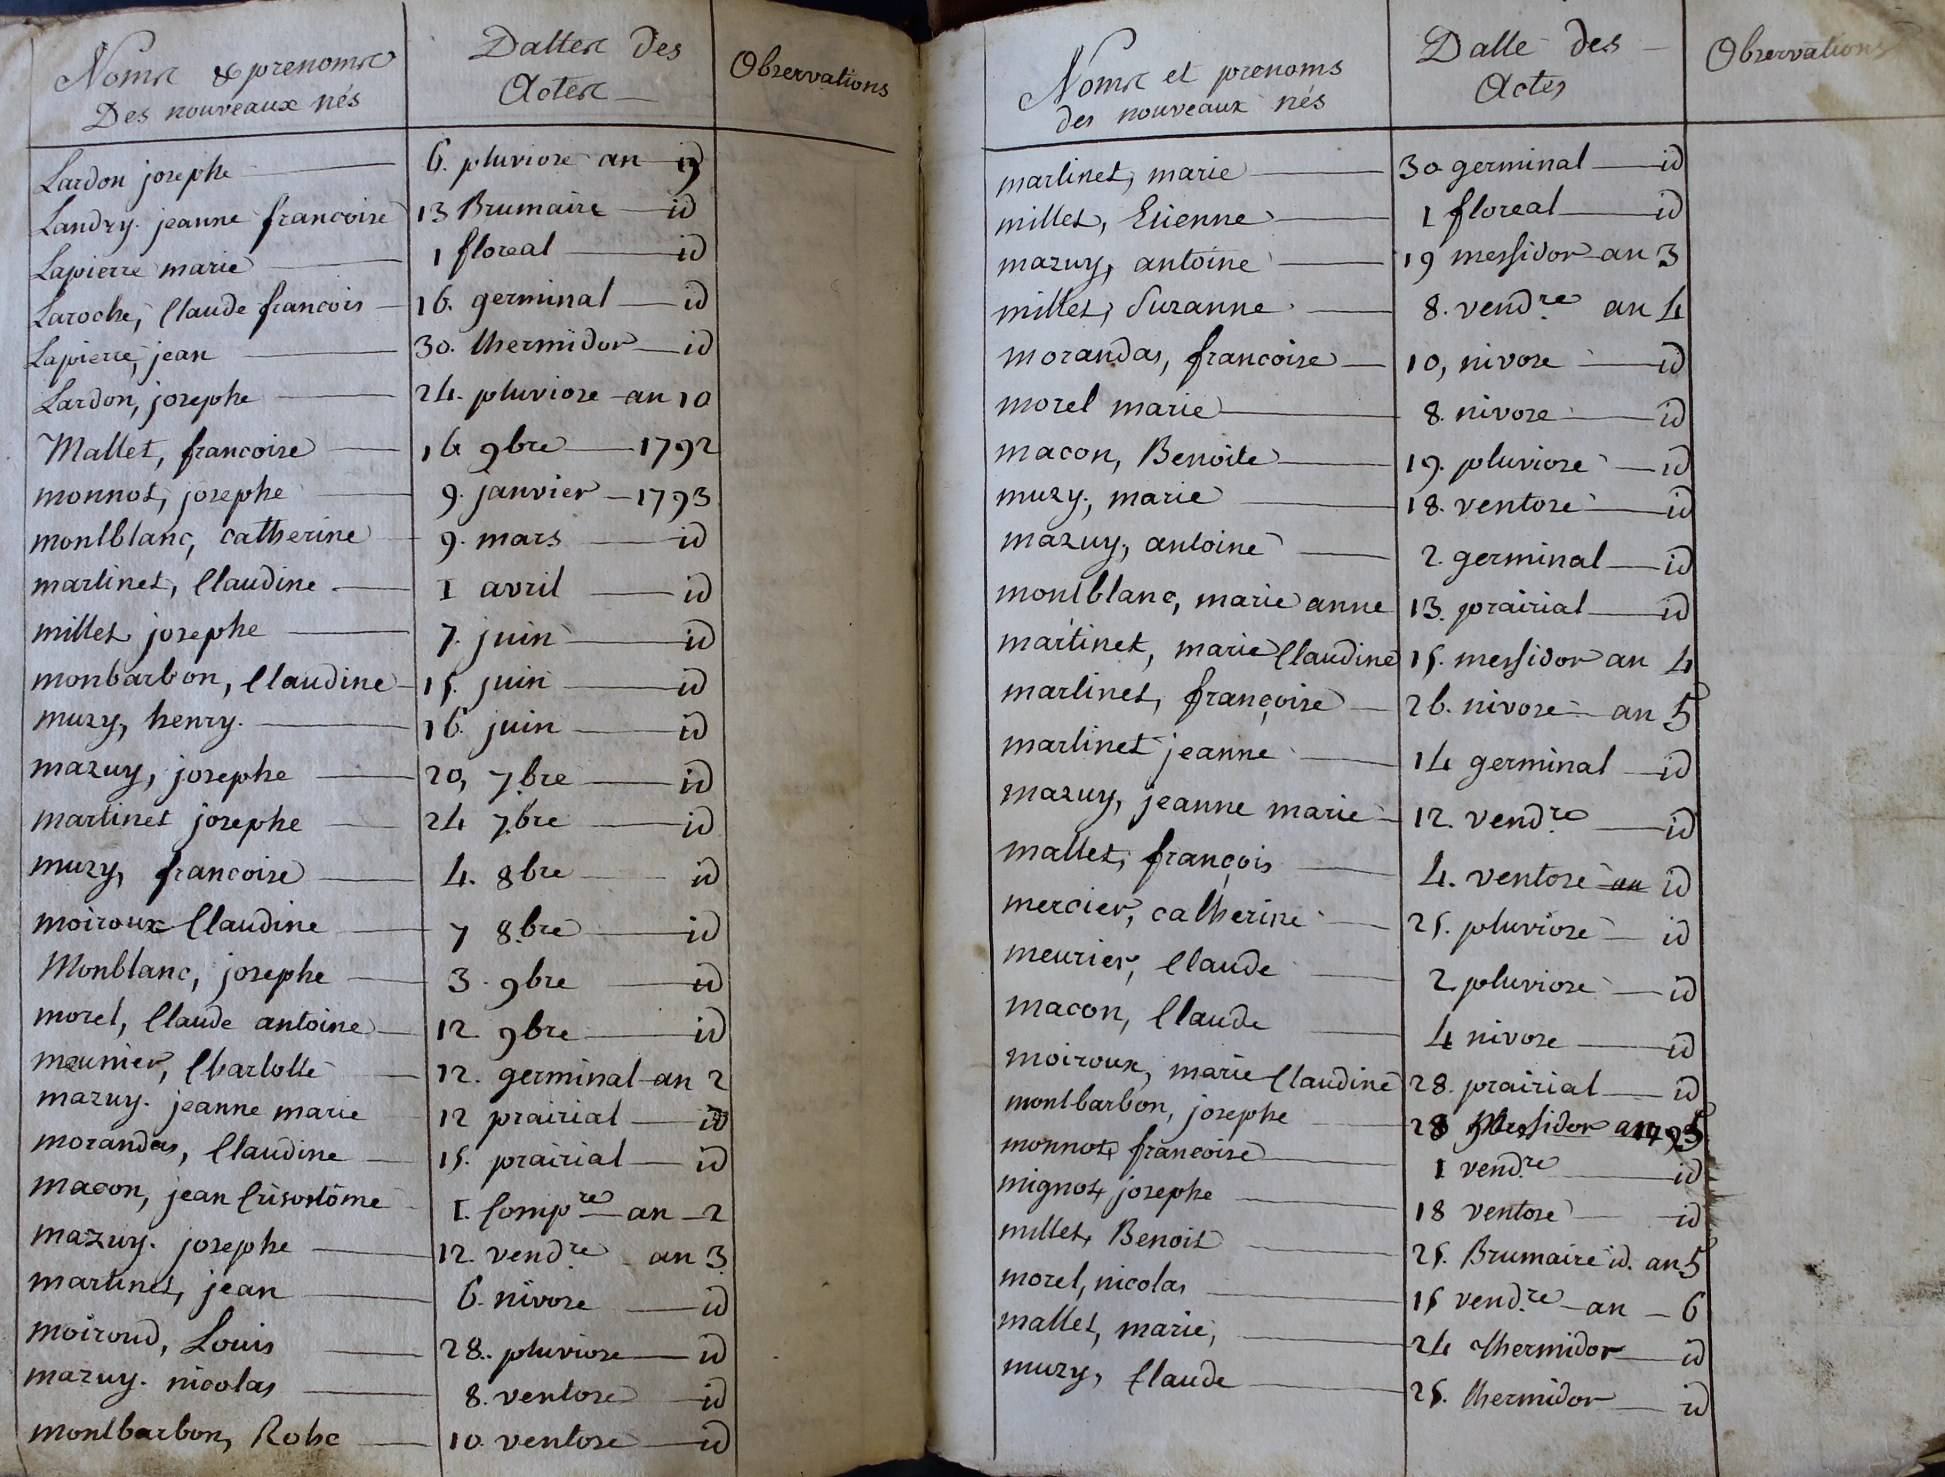 Noms & prenoms
Des nouveaux nés
Dattes des
Actes
Observations
Lardon josephe 6. pluviose an 9
Landry. jeanne francoise 13 Brumaire id
Lapierre marie 1 floreal id
Laroche, Claude francois 16. germinal id
Lapierre, jean 30. thermidor id
Lardon, josephe 24. pluviose an 10
Mallet, francoise 16 9bre 1792
monnot, josephe 9. janvier 1793
montblanc, catherine 9. mars id
martinet, Claudine 1 avril id
millet josephe 7. juin id
monbarbon, Claudine 15. juin id
muzy, henry. 16. juin id
mazuy, josephe 20, 7bre id
martinet josephe 24 7bre id
muzy, francoise 4. 8bre id
moiroux Claudine 7 8.bre id
Monblanc, josephe 3. 9bre id
morel, Claude antoine 12. 9bre id
meunier, Charlotte 12. germinal an 2
mazuy. jeanne marie 12 prairial id
morandas, Claudine 15. prairial id
macon, jean Crisostôme 1. Comp.re an 2
mazuy. josephe 12. vend.re an 3
martinet, jean 6. nivose id
moiroud, Louis 28. pluviose id
mazuy. nicolas 8. ventose id
montbarbon, Robe 10 ventose id
Noms et prenoms
des nouveaux nés
Datte des
Actes
Observations
martinet, marie 30 germinal id
millet, Etienne 1 floreal id
mazuy, antoine 19 messidor an 3
millet, Suzanne 8. vend.re an 4
morandas, francoise 10, nivose id
morel marie 8. nivose id
macon, Benoite 19. pluviose id
muzy, marie 18. ventose id
mazuy, antoine 2. germinal id
montblanc, marie anne 13. prairial id
martinet, marie Claudine 15. messidor an 4
martinet, françoise 26. nivose an 5
martinet jeanne 14 germinal id
mazuy, jeanne marie 12. vend.re id
mallet, françois 4. ventose an id
mercier, catherine 25. pluviose id
meurier, Claude 2 pluviose id
macon, Claude 4 nivose id
moiroux, marie Claudine 28. prairial id
montbarbon, josephe 28 Messidor an 5
monnot francoise 1 vend.re id
mignot, josephe 18 ventose id
millet, Benoit 25. Brumaire id. an 5
morel, nicolas 15 vend.re an 6
mallet, marie, 24 thermidor id
muzy, Claude 25. thermidor id